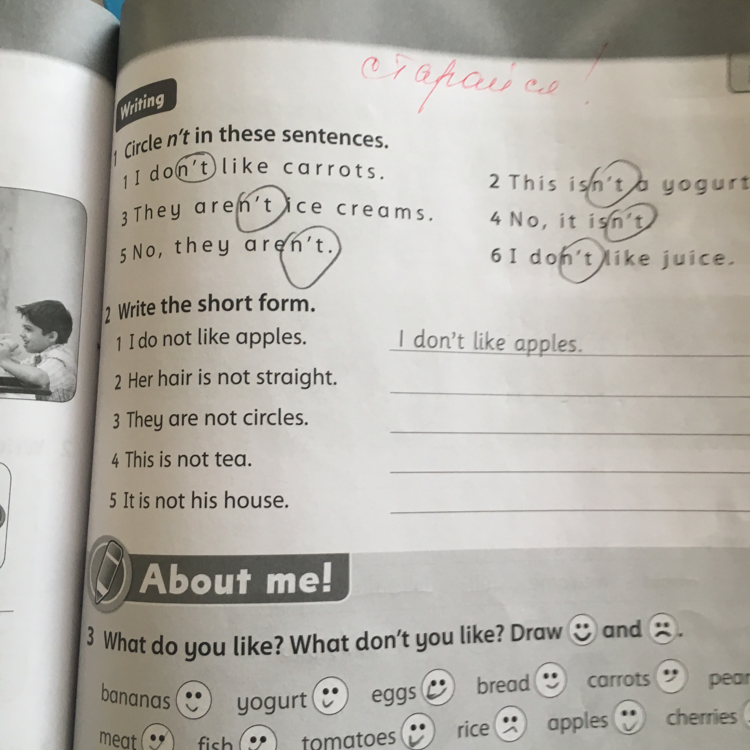 старайся!
Writing
1 Circle n't in these sentences.
1 I don't like carrots.
2 This isn't a yogurt
3 They aren't ice creams.
4 No, it isn't.
5 No, they aren't.
6 I don't like juice.
2 Write the short form.
1 I do not like apples.
I don't like apples.
2 Her hair is not straight.
3 They are not circles.
4 This is not tea.
5 It is not his house.
About me!
3 What do you like? What don't you like? Draw and .
bananas yogurt eggs bread carrots
meat fish tomatoes rice apples cherries